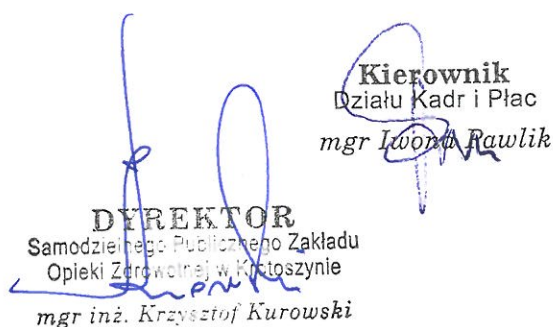 Kierownik
Działu Kadr i Płac
mgr Iwona Pawlik
DYREKTOR
Samodzielnego Publicznego Zakładu
Opieki Zdrowotnej w Krotoszynie
mgr inż. Krzysztof Kurowski